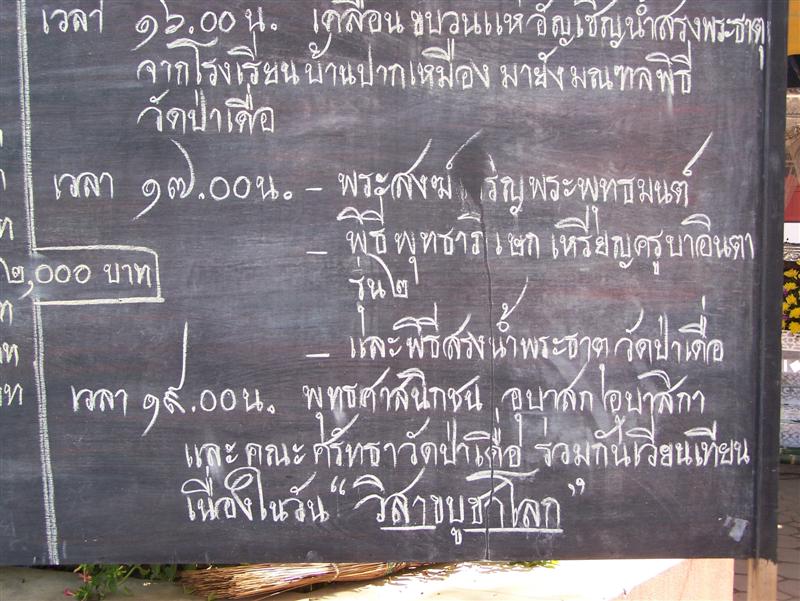 เวลา ๑๖.๐๐ น. เคลื่อนขบวนแห่ อัญเชิญน้ำสรงพระธาตุ
จากโรงเรียนบ้านปากเหมือง มายังมณฑลพิธี
วัดป่าเดื่อ
เวลา ๑๗.๐๐น. – พระสงฆ์ ริญพระพุทธมนต์
– พิธีพุทธาภิเษก เหรียญครูบาอินตา
รุ่น๒
๒,๐๐๐ บาท
– และพิธีสรงน้ำพระธาตุวัดป่าเดื่อ
เวลา ๑๙.๐๐น. พุทธศาสนิกชน อุบาสก อุบาสิกา
และคณะศรัทธาวัดป่าเดื่อ ร่วมกันเวียนเทียน
เนื่องในวัน "วิสาขบูชาโลก"